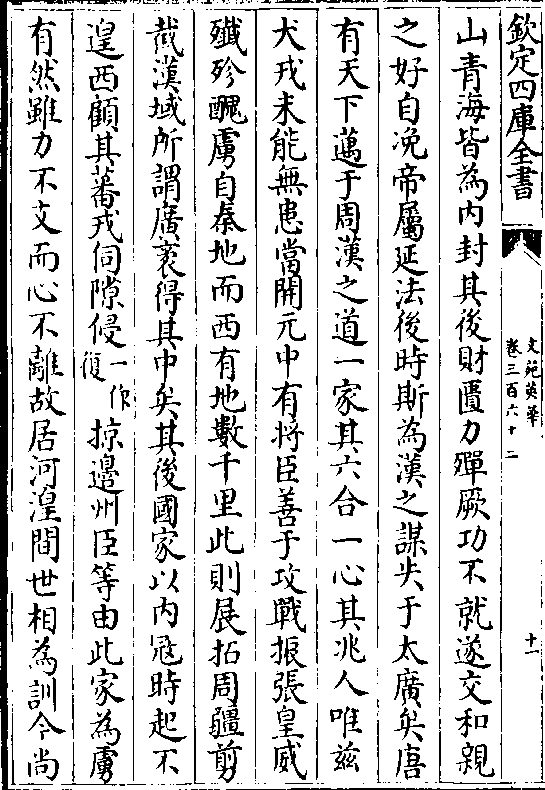 欽定四庫全書
文苑英華
卷三百六十二
十一
山青海皆為内封其後財匱力殫厥功不就遂交和親
之好自洗帝屬延法後時斯為漢之謀失于太廣矣唐
有天下邁于周漢之道一家其六合一心其兆人唯兹
犬戎未能無患當開元中有將臣善于攻戰掁張皇威
殲殄醜虜自秦地而西有地數千里此則展拓周疆剪
截漢域所謂廣袤得其中矣其後國家以内冦時起不
遑西顧其蕃戎伺隙侵一作復掠邊州臣等由此家為虜
有然雖力不支而心不離故居河湟間世相為訓今尚